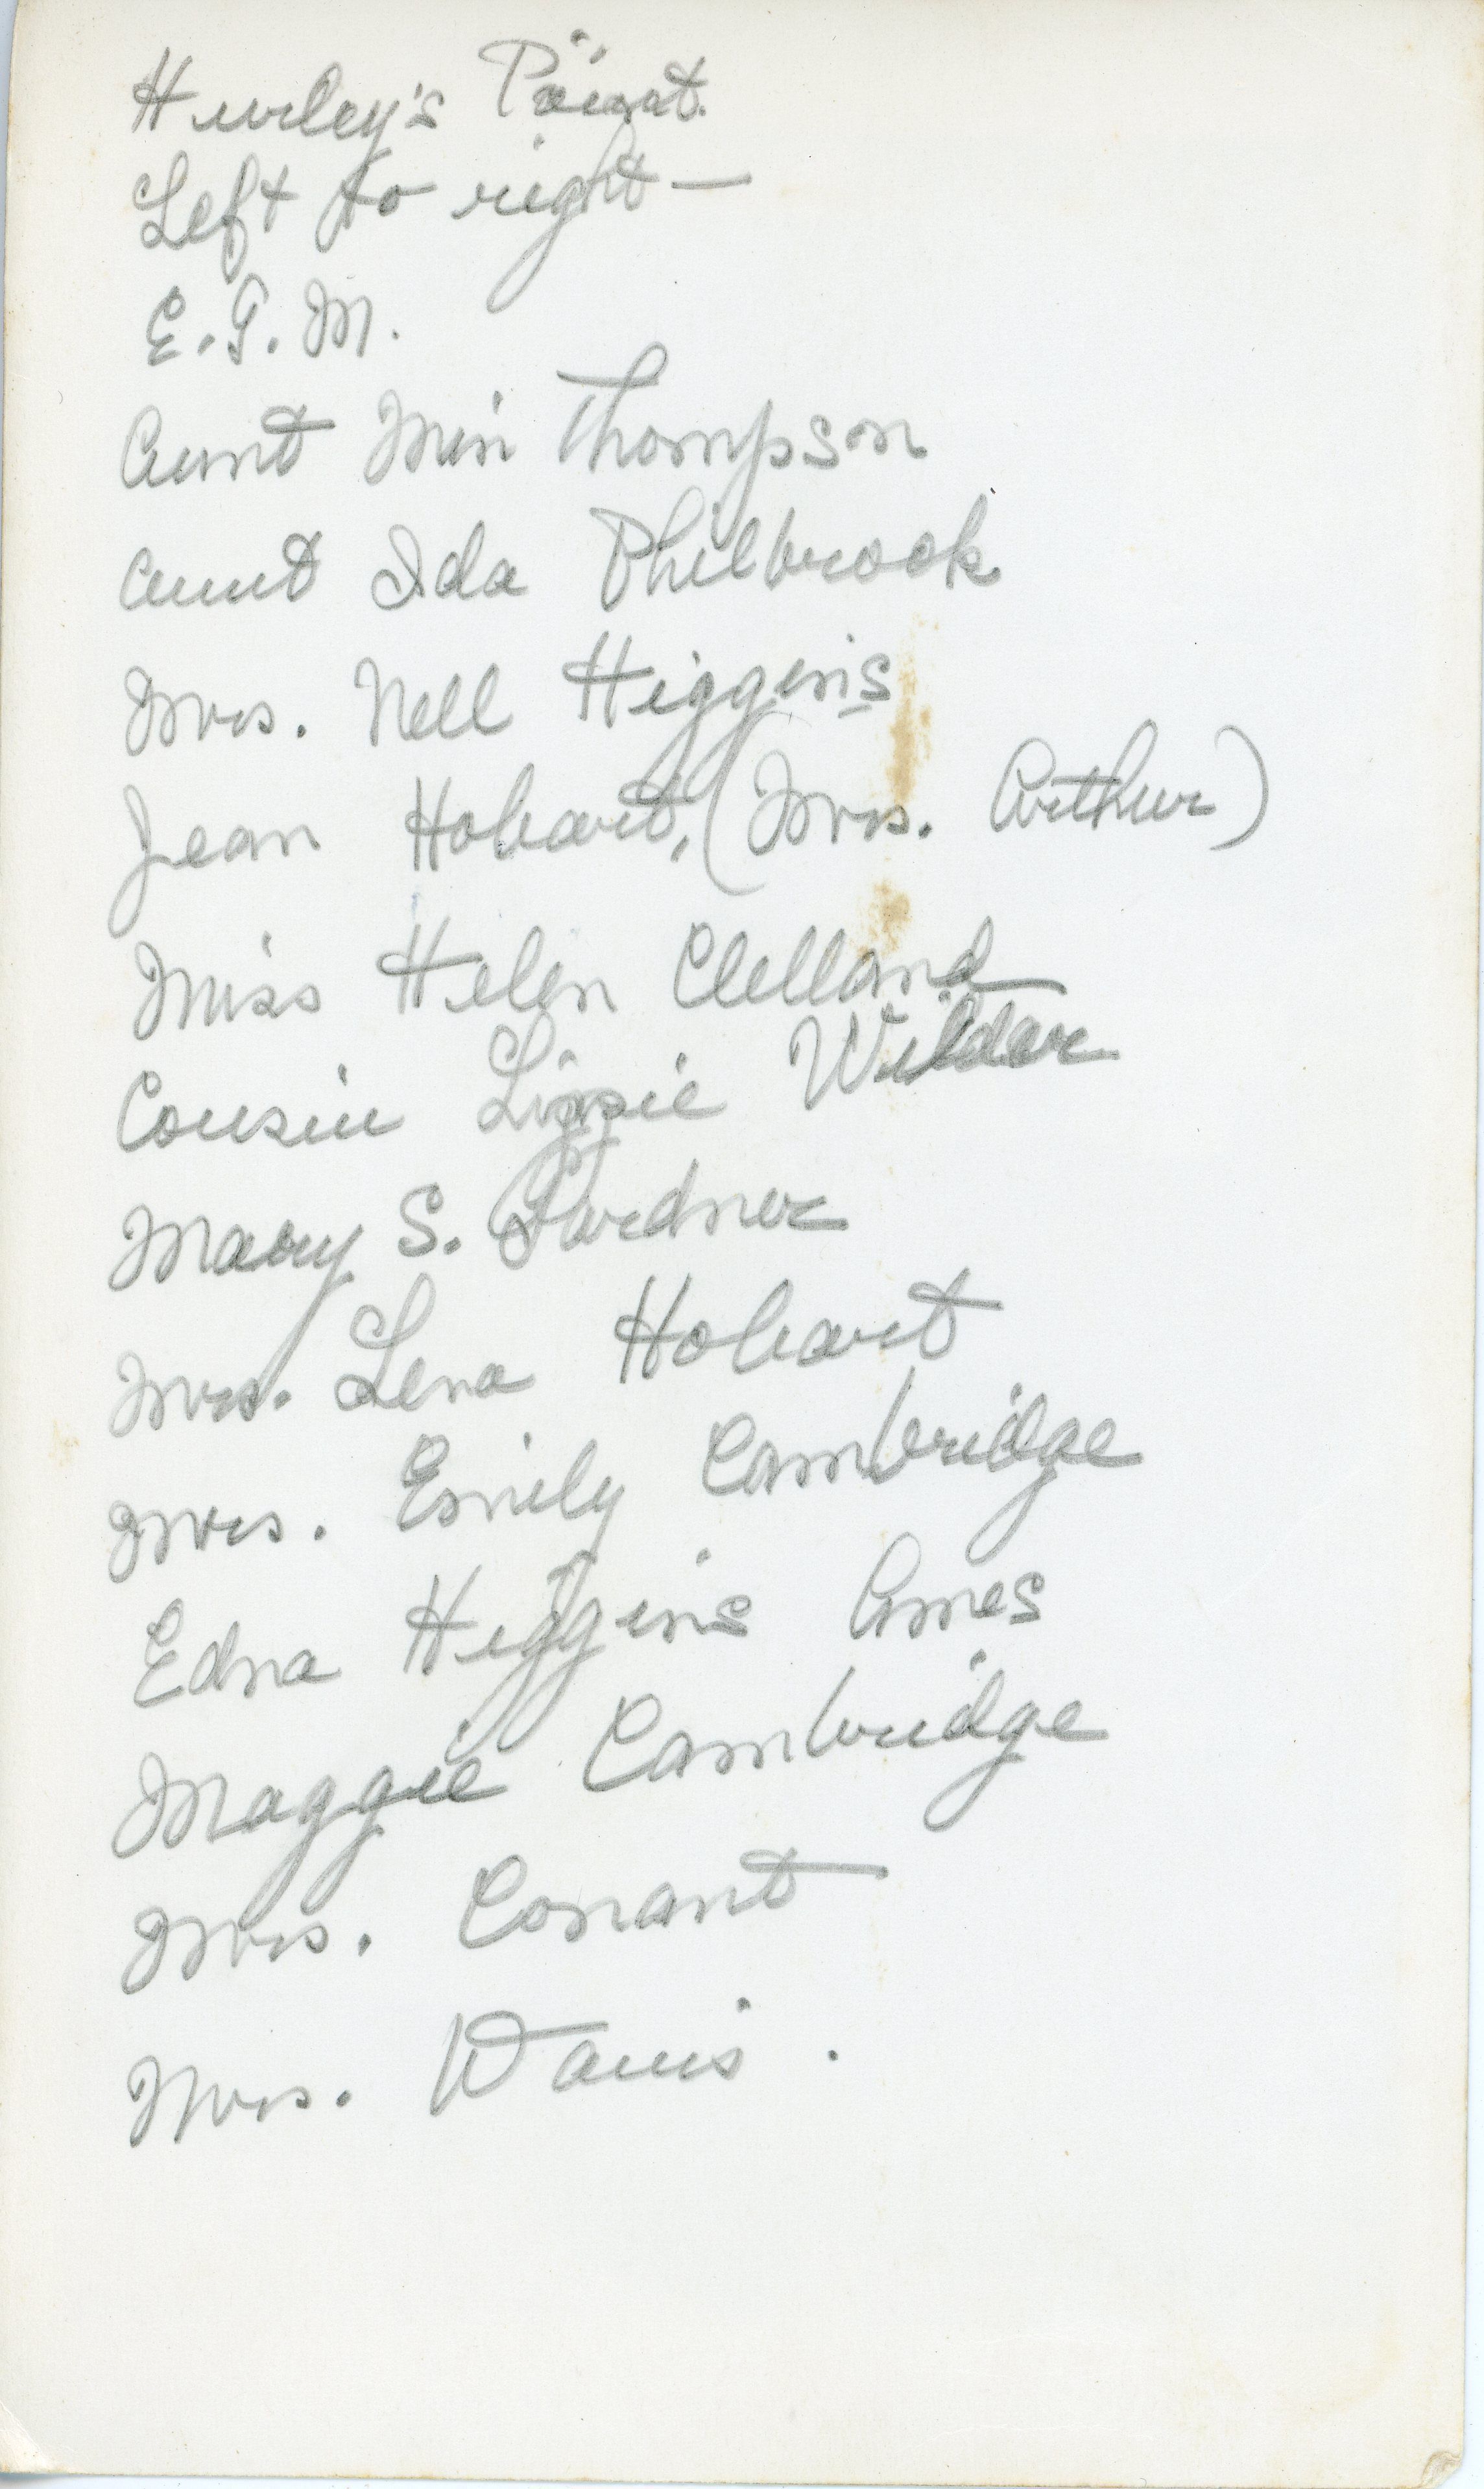 Hurley's Point.
Left to right —
E. G. M.
Aunt Min Thompson
Aunt Ida Philbrook
Mrs. Nell Higgins
Jean Hobart, (Mrs. Arthur)
Miss Helen Clelland
Cousin Lizzie Wilder
Mary S. Gardner
Mrs. Lena Hobart
Mrs. Emily Cambridge
Edna Higgins Ames
Maggie Cambridge
Mrs. Conant
Mrs. Davis.